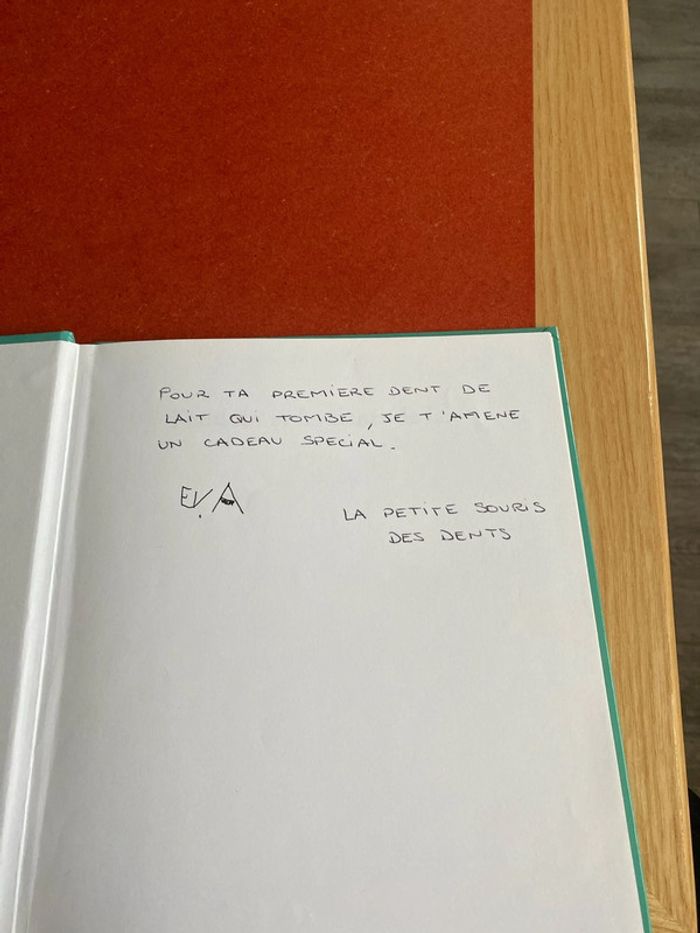 POUR TA PREMIERE DENT DE
LAIT QUI TOMBE, JE T'AMENE
UN CADEAU SPECIAL.
EVA
LA PETITE SOURIS
DES DENTS